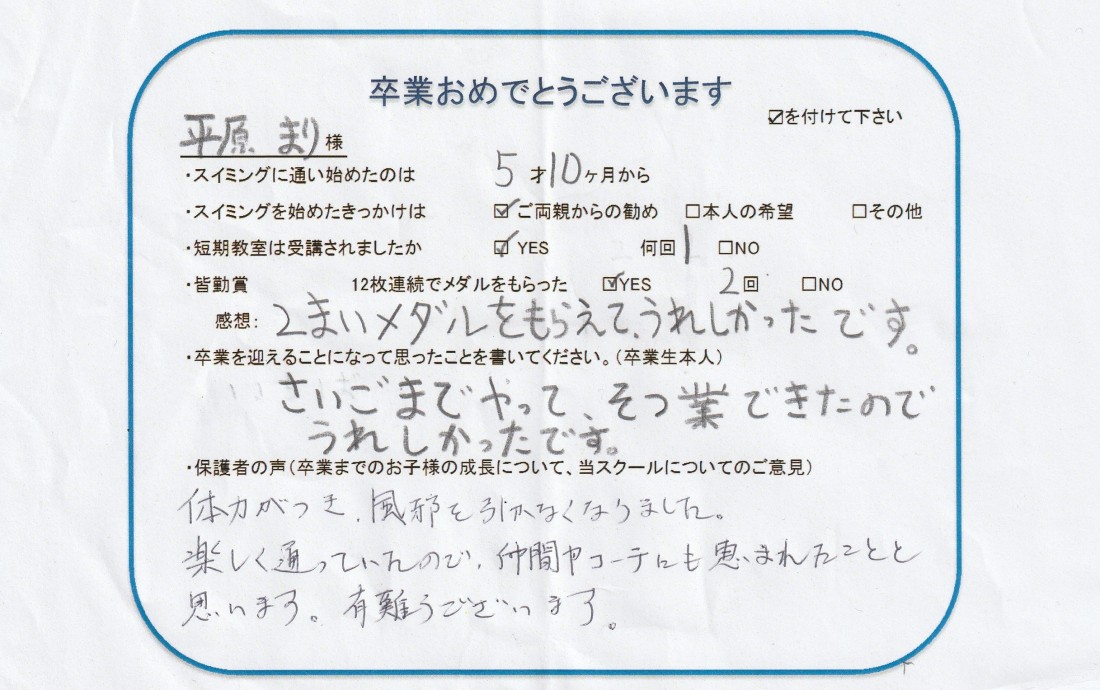 卒業おめでとうございます
☑を付けて下さい
平原 まり様
・スイミングに通い始めたのは 5才10ヶ月から
・スイミングを始めたきっかけは ☑ご両親からの勧め □本人の希望 □その他
・短期教室は受講されましたか ☑YES 何回1 □NO
・皆勤賞 12枚連続でメダルをもらった ☑YES 2回 □NO
感想：2まいメダルをもらえて、うれしかったです。
・卒業を迎えることになって思ったことを書いてください。（卒業生本人）
さいごまでやって、そつ業できたので
うれしかったです。
・保護者の声（卒業までのお子様の成長について、当スクールについてのご意見）
体力がつき、風邪を引かなくなりました。
楽しく通っていたので、仲間やコーチにも恵まれたことと
思います。有難うございます。